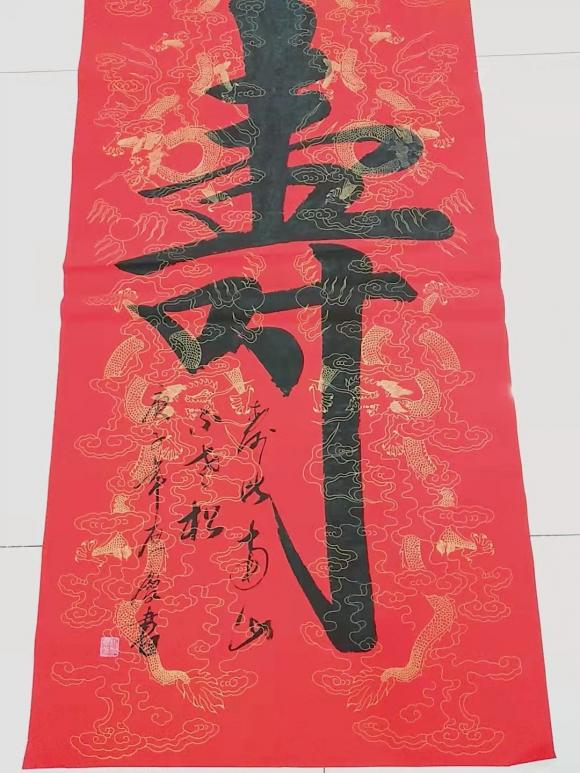 壽
寿比南山
不老松
庚子年書